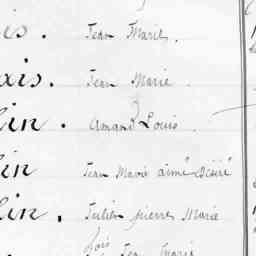 is. Jean Marie.
ais. Jean Marie
lin. Amand Louis
lin Jean Marie aimé Désiré
lin. Julien pierre Marie
fois Jean Marie